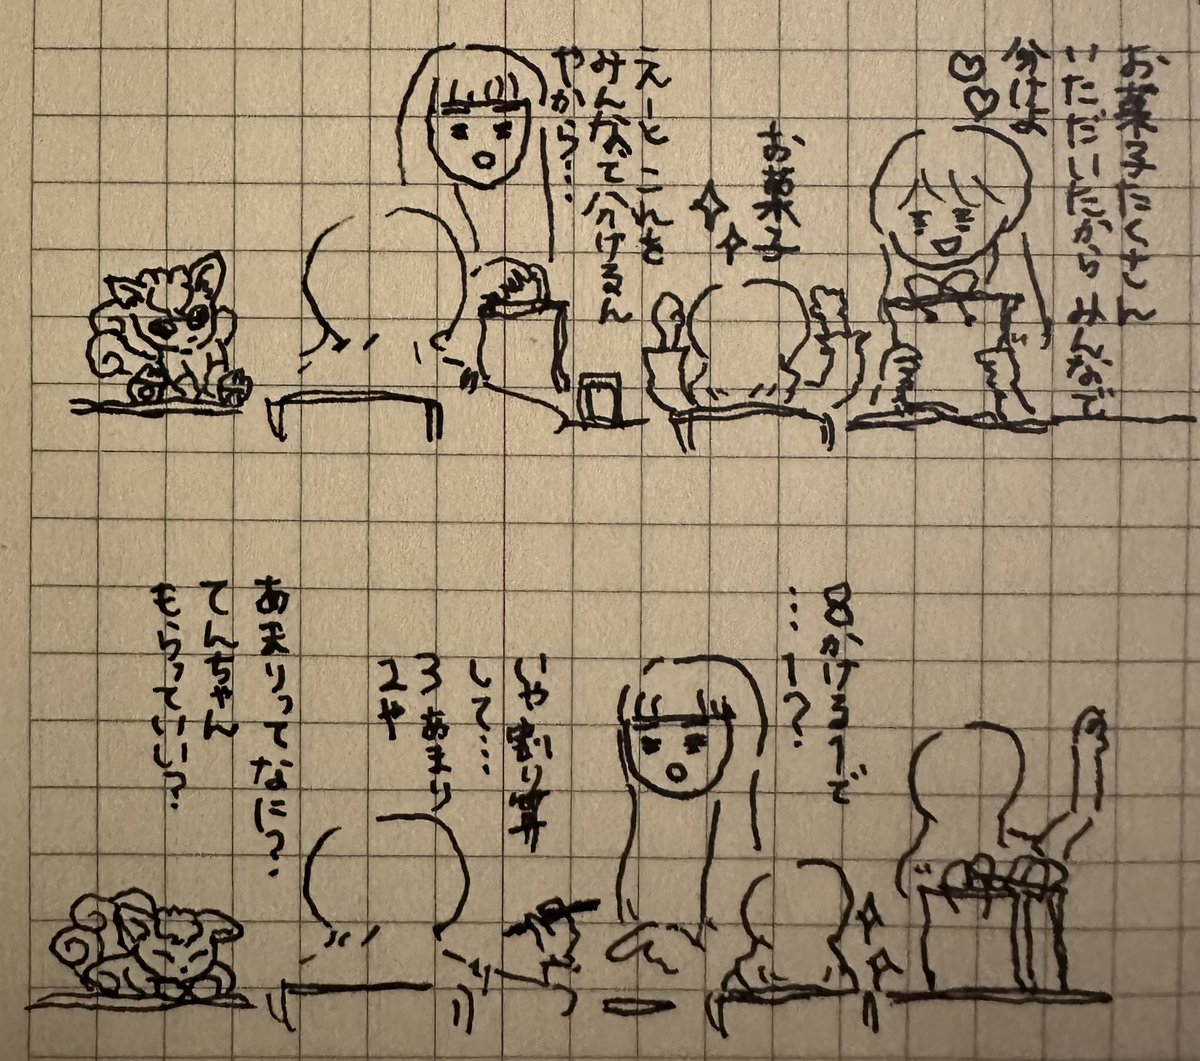 お菓子たくさん
いただいたから みんなで
分けよ
お菓子
えーと これを
みんなで分けるん
やから…
8かける1で
…1?
いや割り算
して…
3あまり
2や
あまりってなに?
てんちゃん
もらっていい?